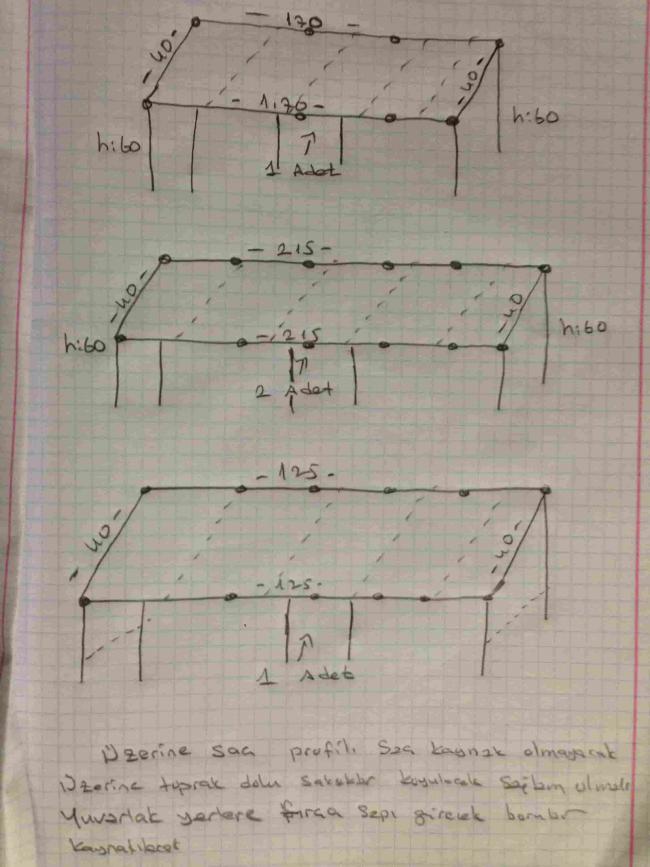 - 170 -
- 40 -
- 40 -
- 1.70 -
h:60
h:60
1 Adet
- 215 -
- 40 -
- 40 -
h:60
- 215
h:60
2 Adet
- 125 -
- 40 -
- 40 -
- 125 -
1 Adet
Üzerine sac profili Sac kaynak olmayacak
Üzerine toprak dolu saksılar koyulacak Sağlam olmalı
Yuvarlak yerlere fırça sapı girecek borular
kaynatılacak